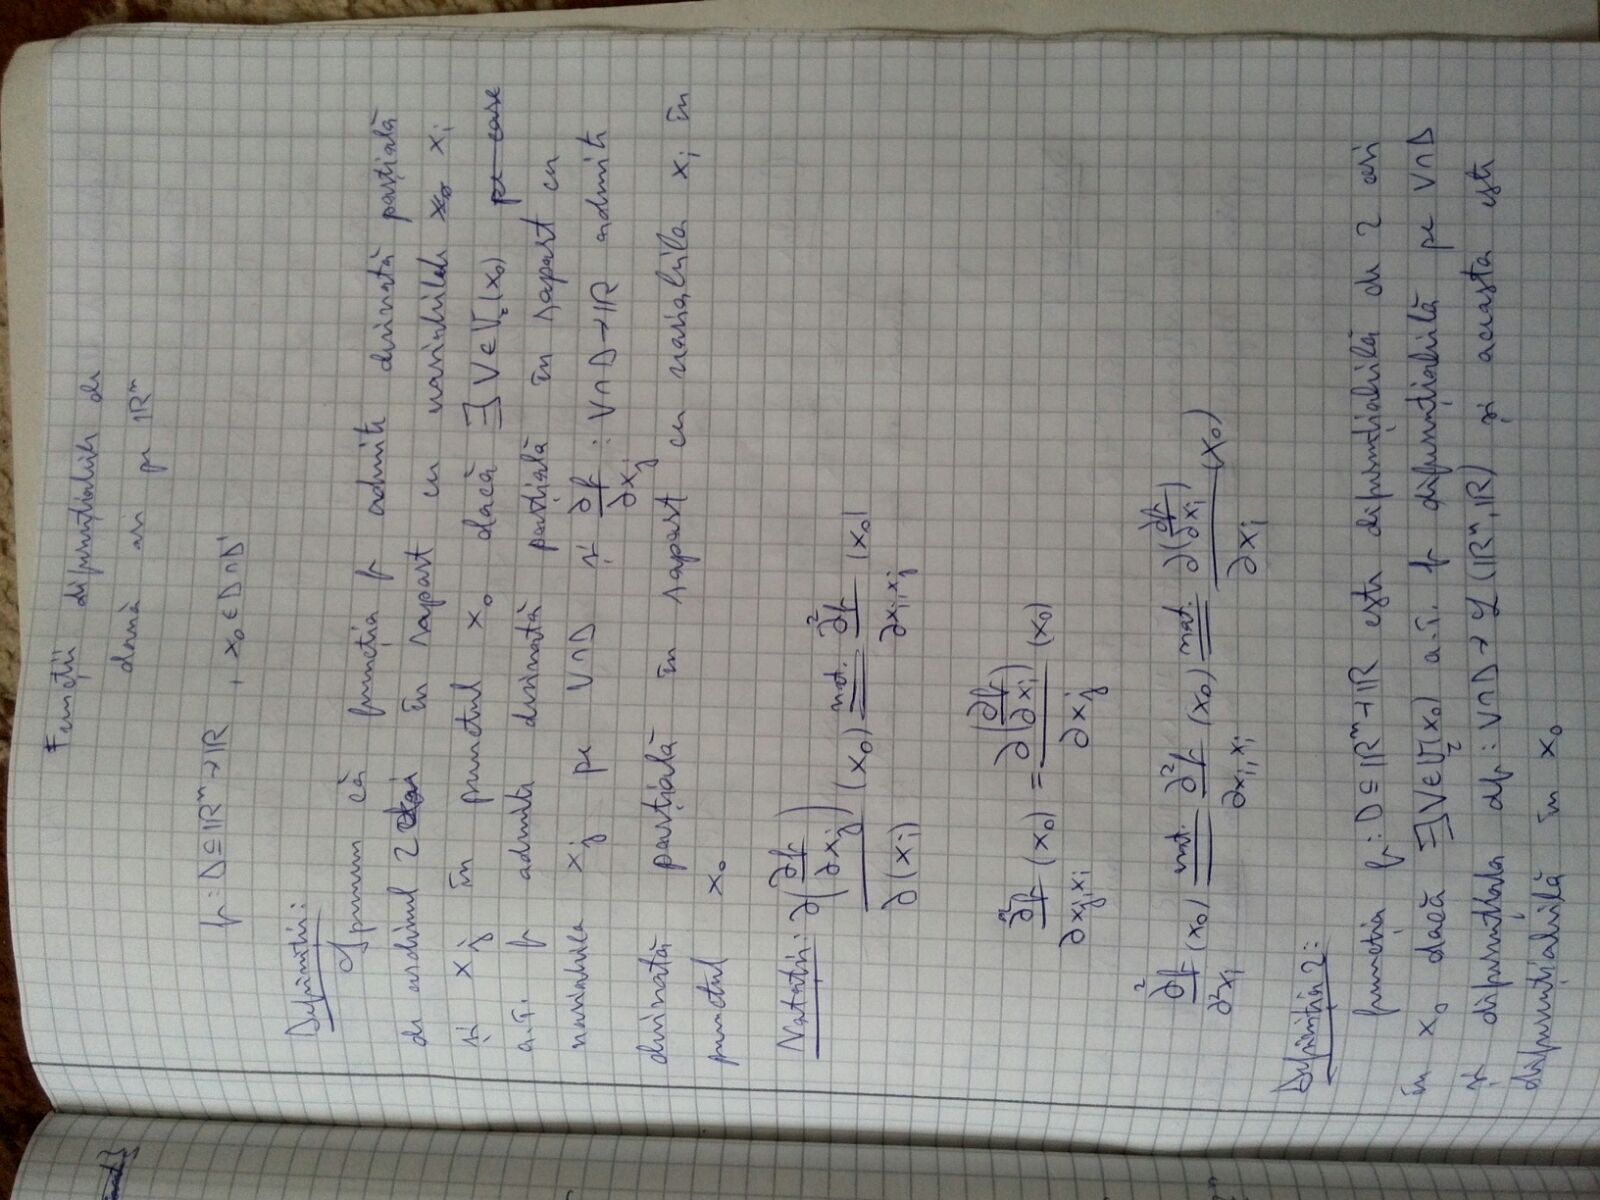 Funcții diferențiabile de
două ori pe ℝⁿ
f: D ⊆ ℝⁿ → ℝ , x₀ ∈ D ∩ D'
Definiții:
Spunem că funcția f admite derivată parțială
de ordinul 2 în raport cu variabilele x₀ xᵢ
și xⱼ în punctul x₀ dacă ∃ V ∈ V_τ(x₀) pe care
a.î. f admite derivată parțială în raport cu
variabila xⱼ pe V∩D și ∂f/∂xⱼ : V∩D → ℝ admite
derivată parțială în raport cu variabila xᵢ în
punctul x₀
Notații: ∂(∂f/∂xⱼ)/∂(xᵢ) (x₀) not. ∂²f/∂xᵢ,xⱼ (x₀)
∂²f/∂xⱼ,xᵢ (x₀) = ∂(∂f/∂xᵢ)/∂xⱼ (x₀)
∂²f/∂²xᵢ (x₀) not. ∂²f/∂xᵢ,xᵢ (x₀) not. ∂(∂f/∂xᵢ)/∂xᵢ (x₀)
Definiția 2:
funcția f: D ⊆ ℝⁿ → ℝ este diferențiabilă de 2 ori
în x₀ dacă ∃ V ∈ V_τ(x₀) a.î. f diferențiabilă pe V∩D
și diferențiala df: V∩D → L(ℝⁿ, ℝ) și aceasta este
diferențiabilă în x₀